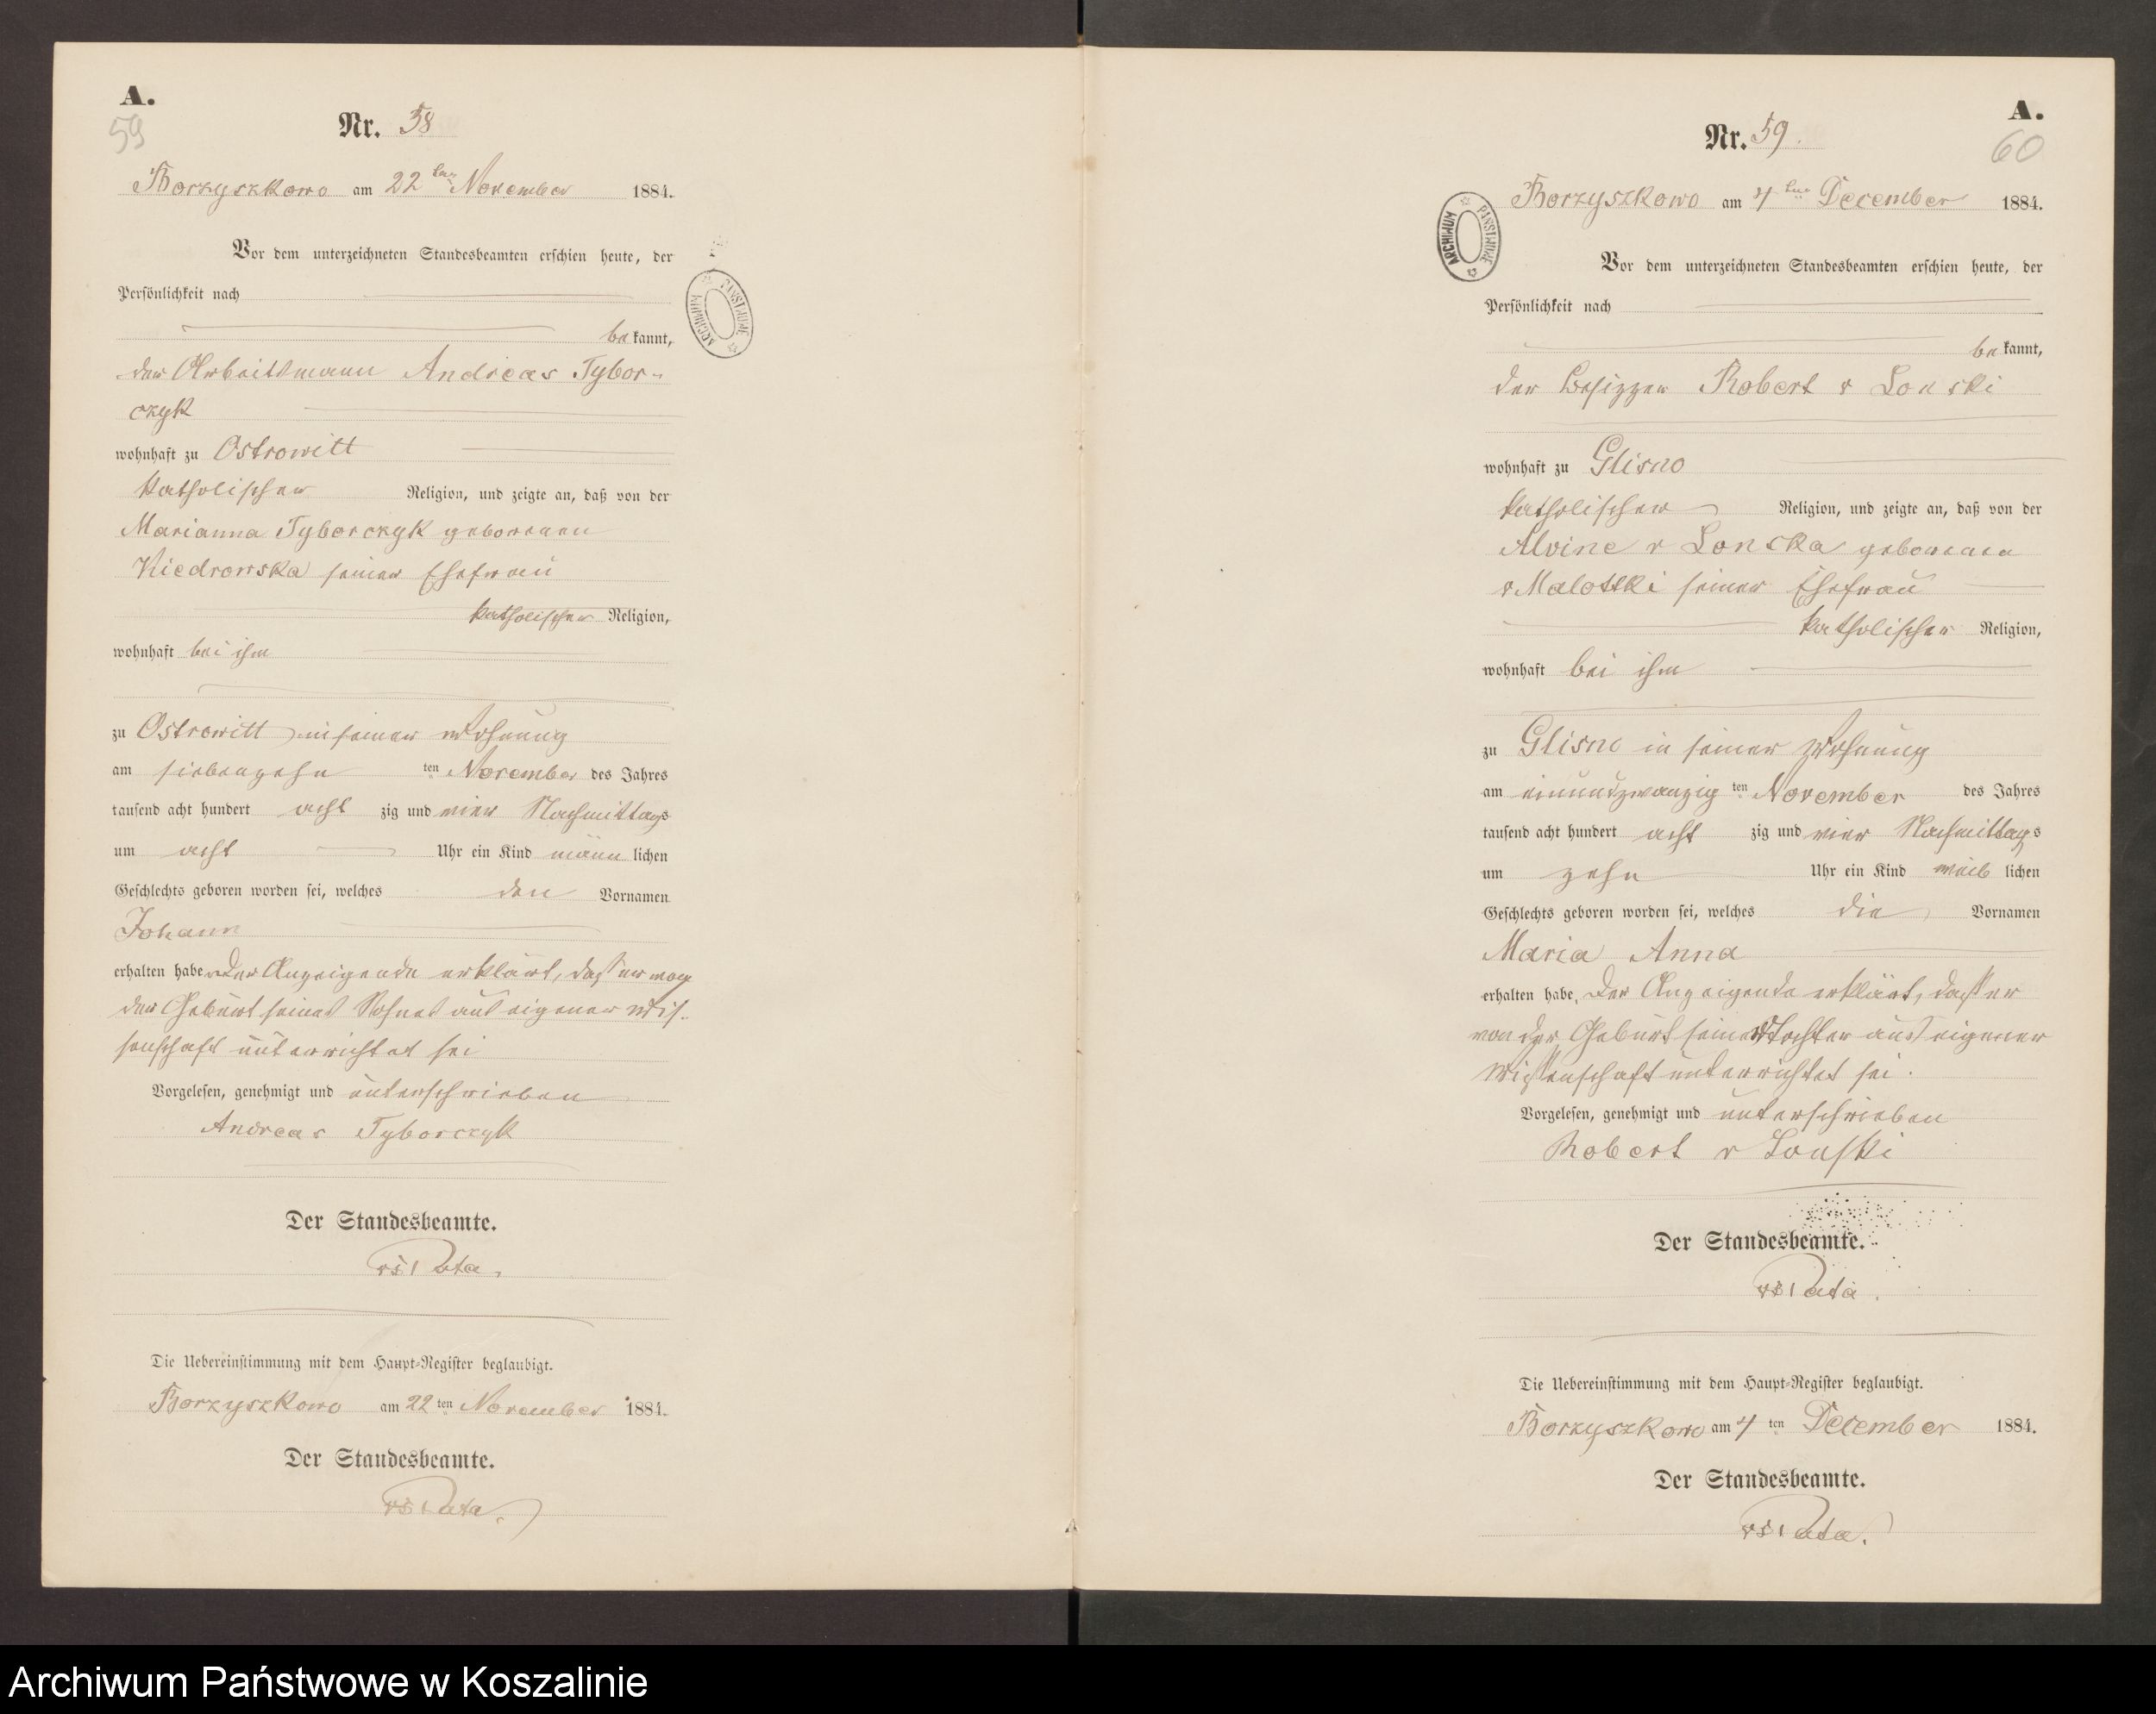 A.
59
Nr. 58
Borzyszkowo am 22ten November 1884.
Vor dem unterzeichneten Standesbeamten erschien heute, der
Persönlichkeit nach
bekannt,
der Arbeitsmann Andreas Tybor-
czyk
wohnhaft zu Ostrowitt
katholischer Religion, und zeigte an, daß von der
Marianna Tyborczyk geborenen
Kiedrowska seiner Ehefrau
katholischer Religion,
wohnhaft bei ihm
zu Ostrowitt in seiner Wohnung
am siebenzehn ten November des Jahres
tausend acht hundert acht zig und vier Nachmittags
um acht Uhr ein Kind männ lichen
Geschlechts geboren worden sei, welches den Vornamen
Johann
erhalten habe Der Anzeigende erklärt, daß er von
der Geburt seines Sohnes aus eigener Wis-
senschaft unterrichtet sei
Vorgelesen, genehmigt und unterschrieben
Andreas Tyborczyk
Der Standesbeamte.
Die Uebereinstimmung mit dem Haupt-Register beglaubigt.
Borzyszkowo am 22 ten November 1884.
Der Standesbeamte.
A.
60
Nr. 59.
ARCHIWUM PAŃSTWOWE
Borzyszkowo am 4ten December 1884.
Vor dem unterzeichneten Standesbeamten erschien heute, der
Persönlichkeit nach
bekannt,
der Besitzer Robert v Lonski
wohnhaft zu Glisno
katholischer Religion, und zeigte an, daß von der
Alvine v Lonska geborenen
v Malottki seiner Ehefrau
katholischer Religion,
wohnhaft bei ihm
zu Glisno in seiner Wohnung
am einundzwanzig ten November des Jahres
tausend acht hundert acht zig und vier Nachmittags
um zehn Uhr ein Kind weib lichen
Geschlechts geboren worden sei, welches die Vornamen
Maria Anna
erhalten habe, Der Anzeigende erklärt, daß er
von der Geburt seiner Tochter aus eigener
Wissenschaft unterrichtet sei.
Vorgelesen, genehmigt und unterschrieben
Robert v Lonski
Der Standesbeamte.
Die Uebereinstimmung mit dem Haupt-Register beglaubigt.
Borzyszkowo am 4 ten December 1884.
Der Standesbeamte.
Archiwum Państwowe w Koszalinie